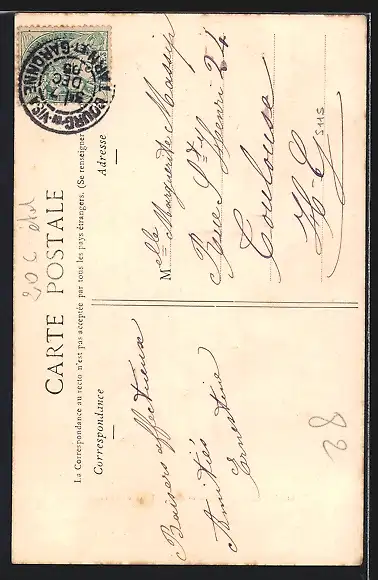 CARTE POSTALE
La Correspondance au recto n'est pas acceptée par tous les pays étrangers. (Se renseigner
Correspondance
Adresse
Baisers affectueux
Amitiés
Ernestine
Melle Marguerite Massip
Rue St Henri 24
Toulouse
H-G
20 c
38